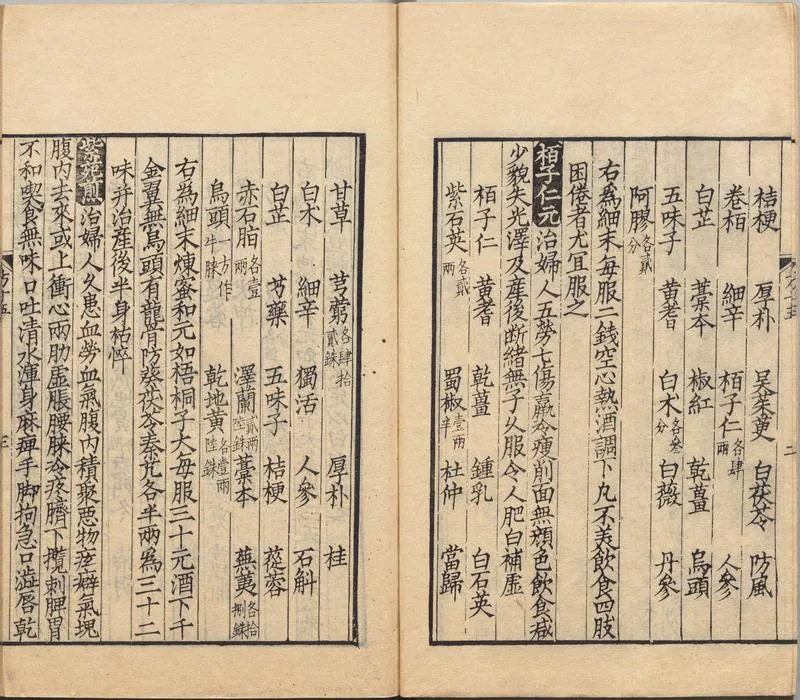 桔梗 厚朴 吳茱萸 白茯苓 防風
卷栢 細辛 栢子仁各肆兩 人參
白芷 藁本 椒紅 乾薑 烏頭
五味子 黃耆 白朮各叁分 白薇 丹參
阿膠各貳分
右為細末每服二錢空心熱酒調下凡不美飲食四肢
困倦者尤宜服之
栢子仁元治婦人五勞七傷羸冷瘦削面無顏色飲食減
少貌失光澤及產後斷緒無子久服令人肥白補虛
栢子仁 黃耆 乾薑 鍾乳 白石英
紫石英各貳兩 蜀椒壹兩半 杜仲 當歸
甘草 芎藭各肆拾貳銖 厚朴 桂
白朮 細辛 獨活 人參 石斛
白芷 芍藥 五味子 桔梗 蓯蓉
赤石脂各壹兩 澤蘭貳兩陸銖 藁本 蕪荑各拾捌銖
烏頭一方作牛膝 乾地黃各壹兩陸銖
右為細末煉蜜和元如梧桐子大每服三十元酒下千
金翼無烏頭有龍骨防葵茯苓秦艽各半兩為三十二
味并治產後半身祐悴
紫菀煎治婦人久患血勞血氣腹內積聚惡物痃癖氣塊
腹內去來或上衝心兩肋虛脹腰脥冷疼臍下攪刺脾胃
不和喫食無味口吐清水渾身麻痺手脚拘急口澁唇乾
方十五
三
二